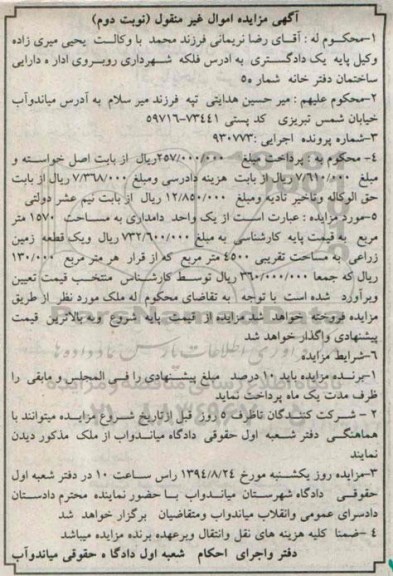 آگهی مزایده اموال غیر منقول (نوبت دوم)
۱-محکوم له : آقـای رضا نریمانی فرزند محمد با وکالـت یحیی میری زاده
وکیل پایه یک دادگستـری به ادرس فلکه شهـرداری روبـروی ادار ه دارایی
ساختمان دفتر خانه شمار ه۵
۲-محکوم علیهم : میر حسین هدایتی تپه فرزند میر سلام به آدرس میاندوآب
خیابان شمس تبریزی کد پستی ۷۳۴۴۱-۵۹۷۱۶
۳-شماره پرونده اجرایی :۹۳۰۷۷۳
۴- محکوم به : پرداخت مبلغ ۲۵۷/۰۰۰/۰۰۰ریال از بابت اصل خواسته و
مبلغ ۷/۶۱۰/۰۰۰ ریال از بابت هزینه دادرسی ومبلغ ۷/۳۶۸/۰۰۰ ریال از بابت
حق الوکاله وتاخیر تادیه ومبلغ ۱۲/۸۵۰/۰۰۰ ریال از بابت نیم عشر دولتی
۵-مورد مزایده : عبارت است از یک واحد دامداری به مساحت ۱۵۷۰ متر
مربع به قیمت پایه کارشناسی به مبلغ ۷۳۲/۶۰۰/۰۰۰ ریال ویک قطعه زمین
زراعی به مساحت تقریبی ۴۵۰۰ متر مربع که از قرار هر متر مربع ۱۳۰/۰۰۰
ریال که جمعا ۳۶۰/۰۰۰/۰۰۰ ریال توسط کارشناس منتخب قیمت تعیین
وبرآورد شده است با توجه به تقاضای محکوم له ملک مورد نظر از طریق
مزایده فروخته خواهد شد مزایده از قیمت پایه شروع وبه بالاترین قیمت
پیشنهادی واگذار خواهد شد
۶-شرایط مزایده
۱-برنده مزایده باید ۱۰ درصد مبلغ پیشنهادی را فی المجلس و مابقی را
ظرف مدت یک ماه پرداخت نماید
۲ - شرکت کنندگان تاظرف ۵ روز قبل از تاریخ شروع مزایده میتوانند با
هماهنگی دفتر شعبه اول حقوقی دادگاه میاندواب از ملک مذکور دیدن
نمایند
۳-مزایده روز یکشنبه مورخ ۱۳۹۴/۸/۲۴ راس ساعت ۱۰ در دفتر شعبه اول
حقوقی دادگاه شهرستان میاندواب با حضور نماینده محترم دادستان
دادسرای عمومی وانقلاب میاندواب ومتقاضیان برگزار خواهد شد
۴ -ضمنا کلیه هزینه های نقل وانتقال وبرعهده برنده مزایده میباشد
دفتر واجرای احکام شعبه اول دادگا ه حقوقی میاندوآب